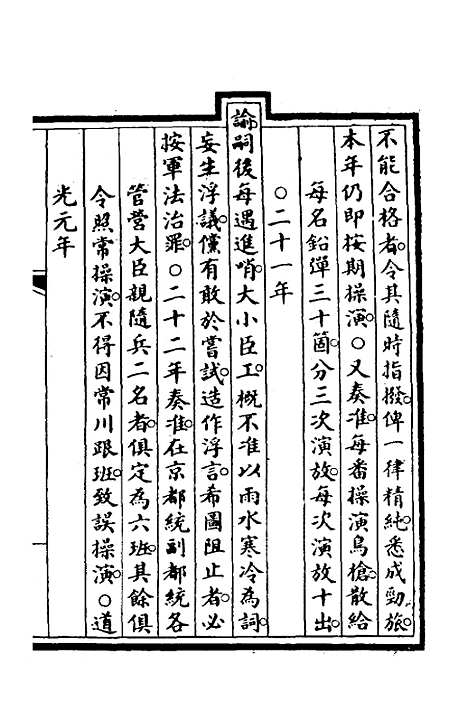 不能合格者○令其隨時指撥○俾一律精純○悉成勁旅○
本年仍即按期操演○○又奏准○每番操演鳥槍○散給
每名鉛彈三十箇○分三次演放○每次演放十出○
○二十一年
諭嗣後每遇進哨○大小臣工○概不准以雨水寒冷為詞○
妄生浮議○僅有敢於嘗試○造作浮言○希圖阻止者○必
按軍法治罪○○二十二年奏准○在京都統副都統各
管營大臣親隨兵二名者○俱定為六班○其餘俱
令照常操演○不得因常川跟班○致誤操演○○道
光元年